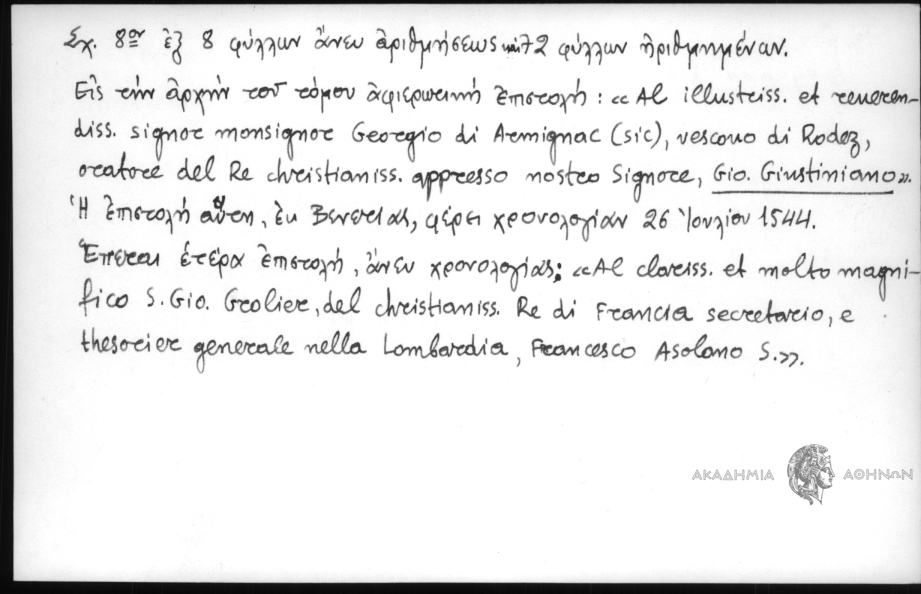 Σχ. 8ον ἐξ 8 φύλλων ἄνευ ἀριθμήσεως καὶ 72 φύλλων ἠριθμημένων.
Εἰς τὴν ἀρχὴν τοῦ τόμου ἀφιερωτικὴ ἐπιστολή: «Al illustriss. et reveren-
diss. signor monsignor Georgio di Armignac (sic), vescovo di Rodez,
oratore del Re christianiss. appresso nostro Signore, Gio. Giustiniano».
Ἡ ἐπιστολὴ αὕτη, ἐκ Βενετίας, φέρει χρονολογίαν 26 Ἰουλίου 1544.
Ἕπεται ἑτέρα ἐπιστολή, ἄνευ χρονολογίας: «Al clariss. et molto magni-
fico S. Gio. Grolier, del christianiss. Re di Francia secretario, e
thesorier generale nella Lombardia, Francesco Asolano S.».
ΑΚΑΔΗΜΙΑ ΑΘΗΝΩΝ